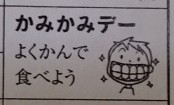 かみかみデー
よくかんで
食べよう